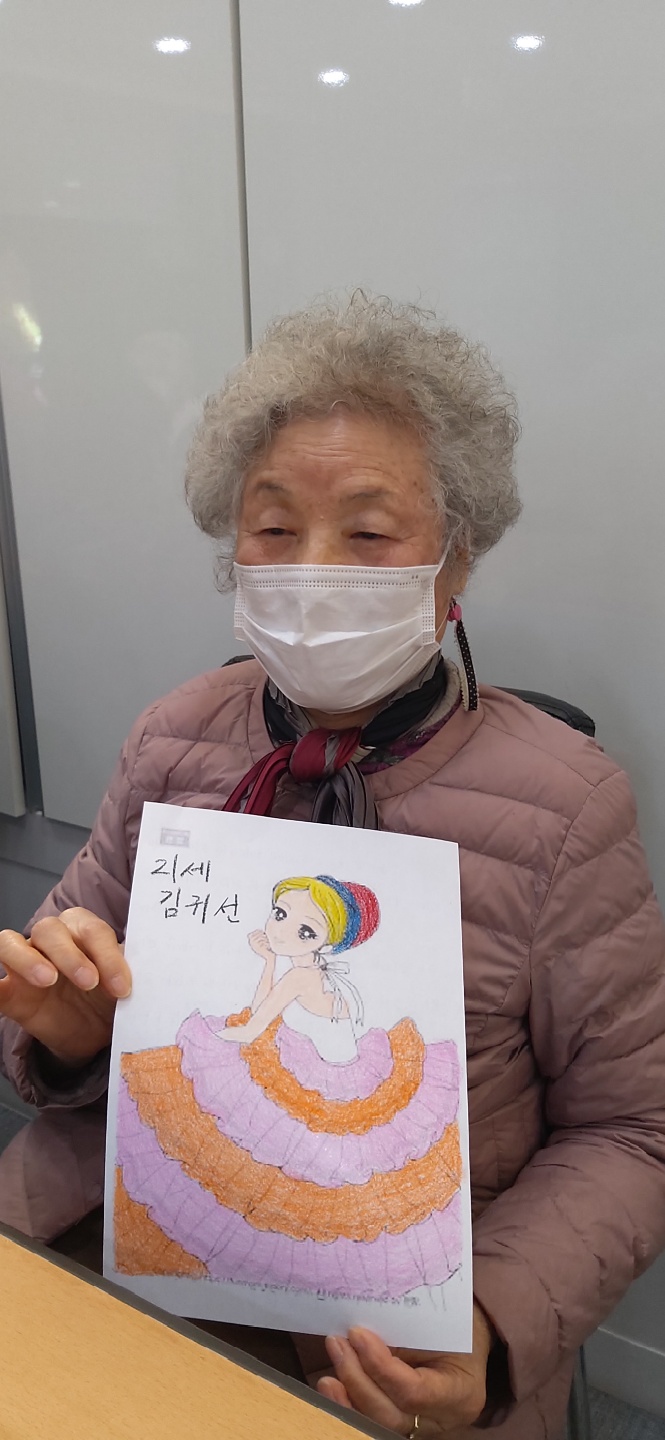 리세
김귀선